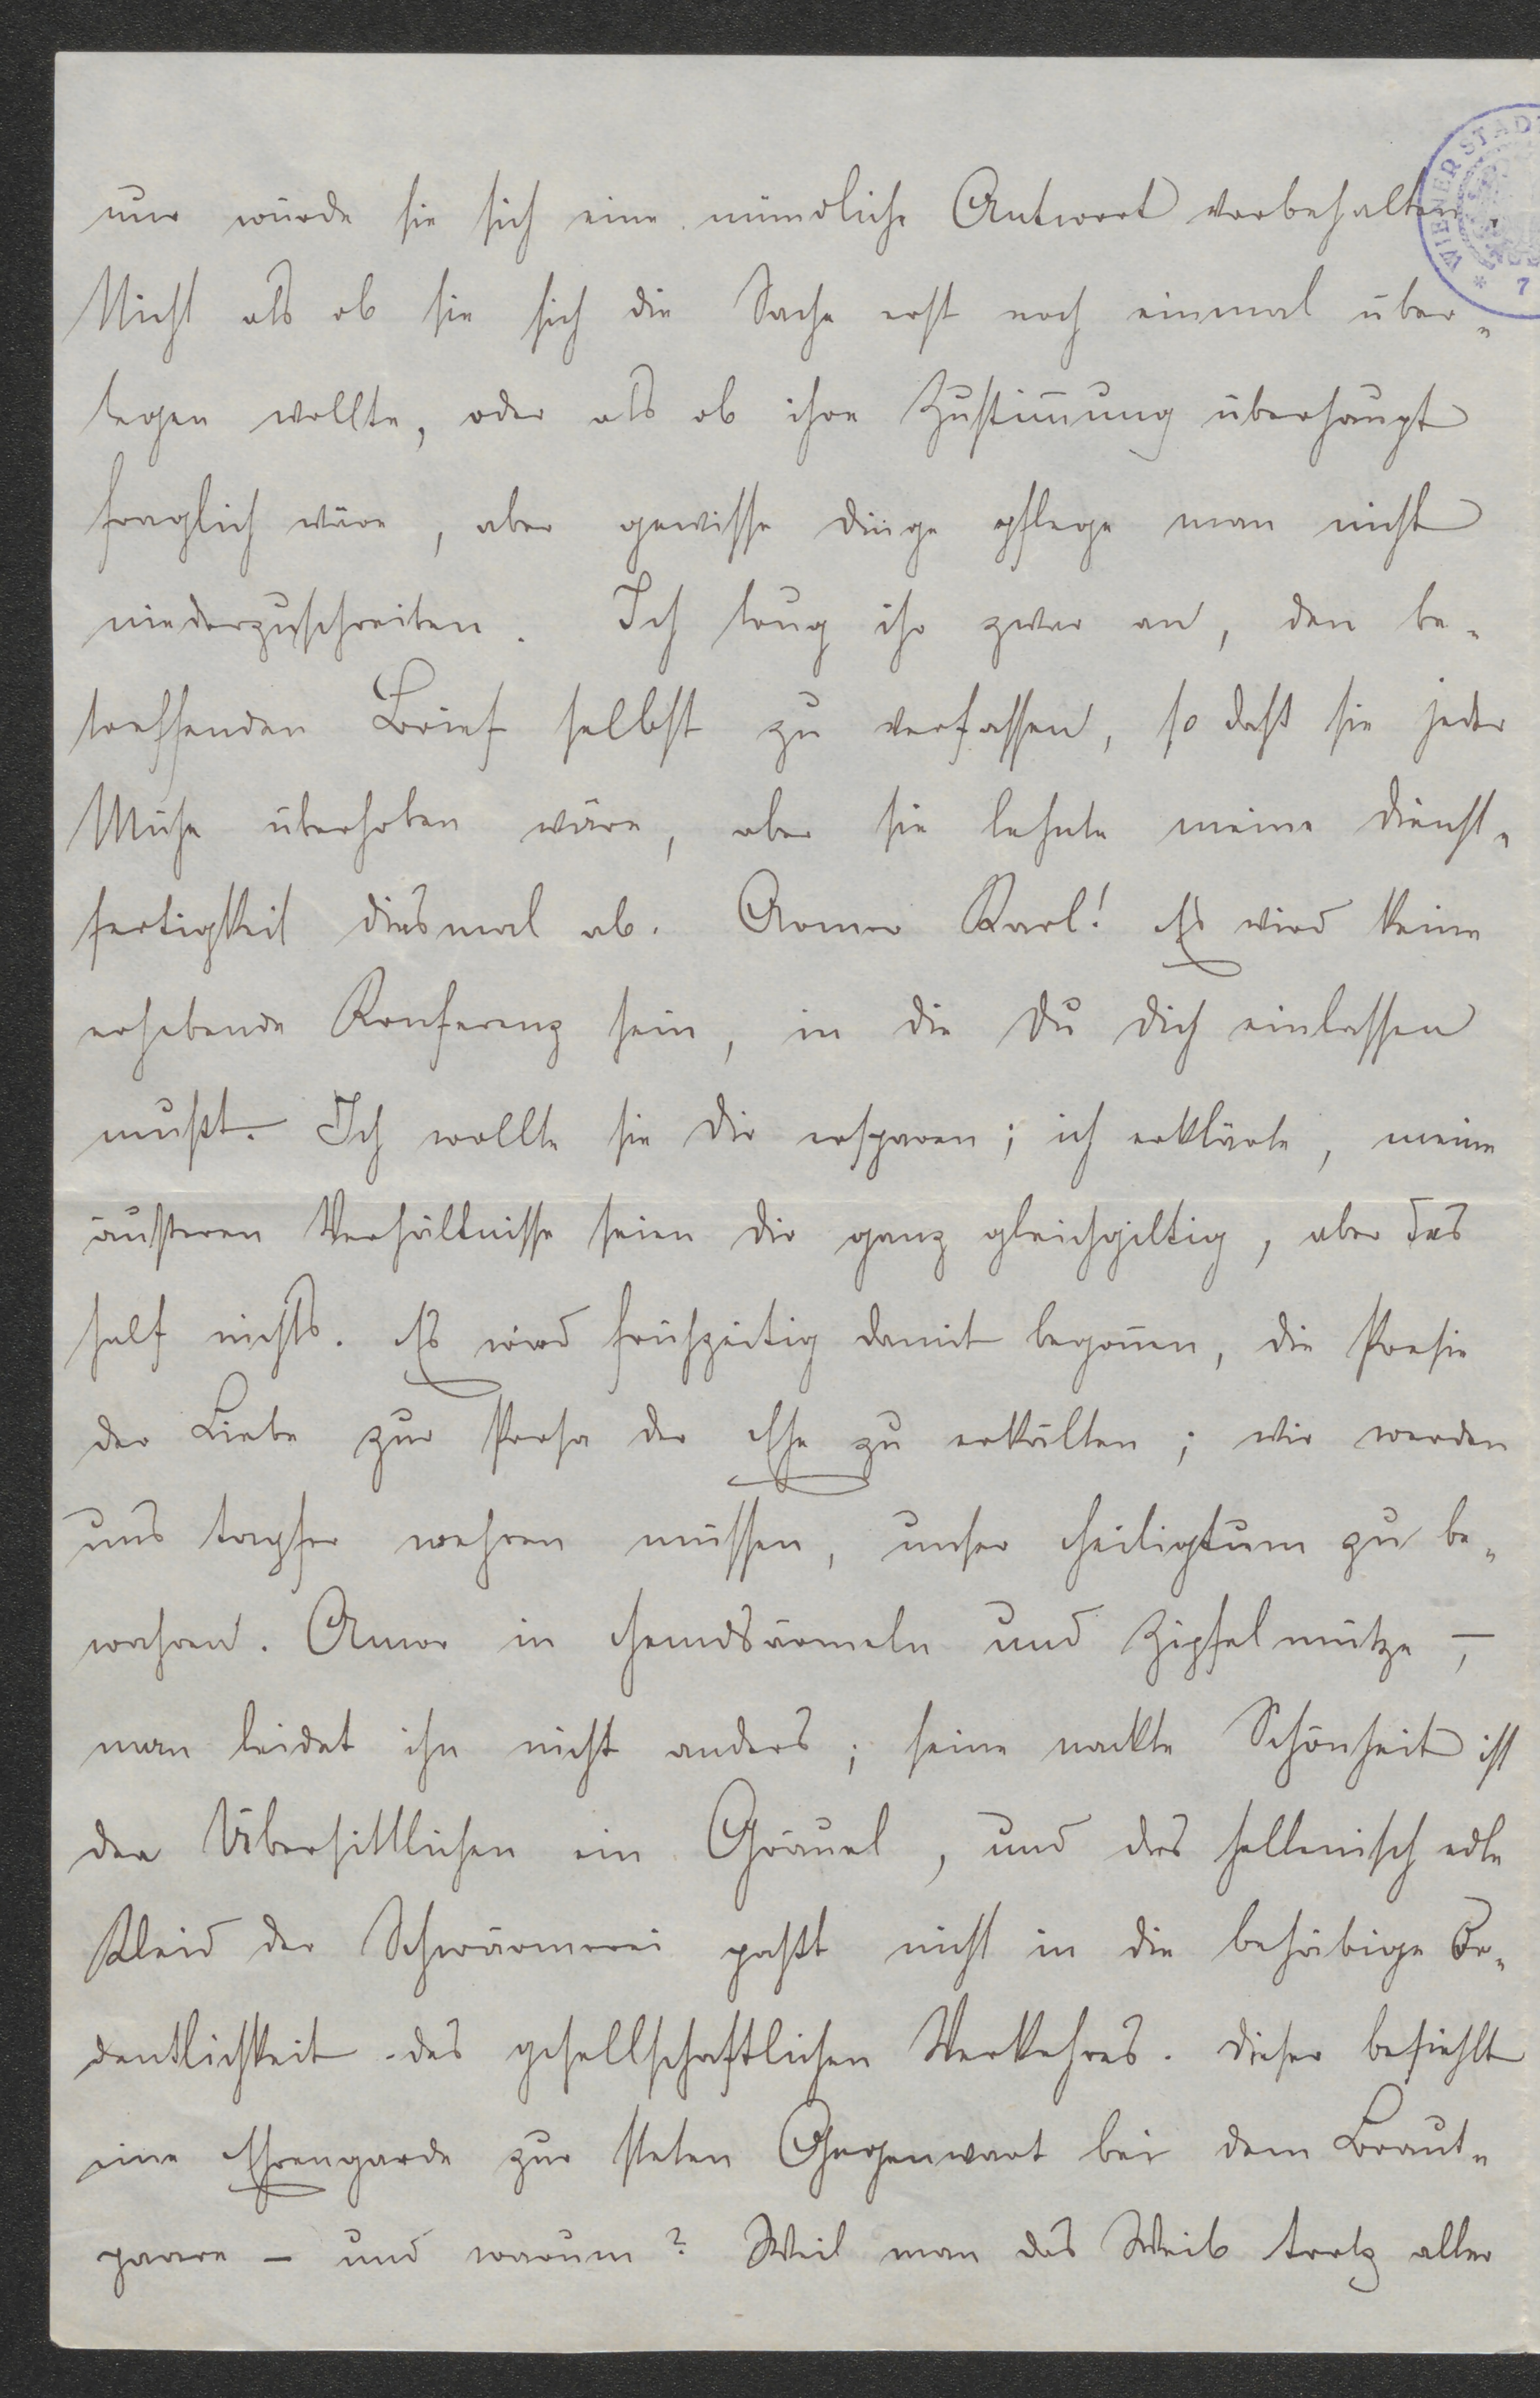 nur würde sie sich eine mündliche Antwort vorbehalten.
Nicht als ob sie sich die Sache erst noch einmal über-
legen wollte, oder als ob ihre Zustim̅ung überhaupt
fraglich wäre, aber gewisse Dinge pflege man nicht
niederzuschreiben. Ich trug ihr zwar an, den be-
treffenden Brief selbst zu verfassen, so daß sie jeder
Mühe überhoben wäre, aber sie lehnte meine Dienst-
fertigkeit diesmal ab. Armer Karl! Es wird keine
erhebende Konferenz sein, in die Du Dich einlassen
mußt. Ich wollte sie Dir ersparen; ich erklärte, meine
äußeren Verhältnisse seien Dir ganz gleichgiltig, aber das
half nichts. Es wird frühzeitig damit begon̅en, die Poesie
der Liebe zur Prosa der Ehe zu erkälten; wir werden
uns tapfer wehren müssen, unser Heiligtum zu be-
wahren. Amor in Hemdsärmeln und Zipfelmütze –,
man leidet ihn nicht anders; seine nackte Schönheit ist
den Übersittlichen ein Gräuel, und das hellenisch edle
Kleid der Schwärmerei paßt nicht in die behäbige Or-
dentlichkeit des gesellschaftlichen Verkehres. Dieser befiehlt
eine Ehrengarde zur steten Gegenwart bei dem Braut-
paare – und warum? Weil man das Weib trotz aller
WIENER STAD
* 7